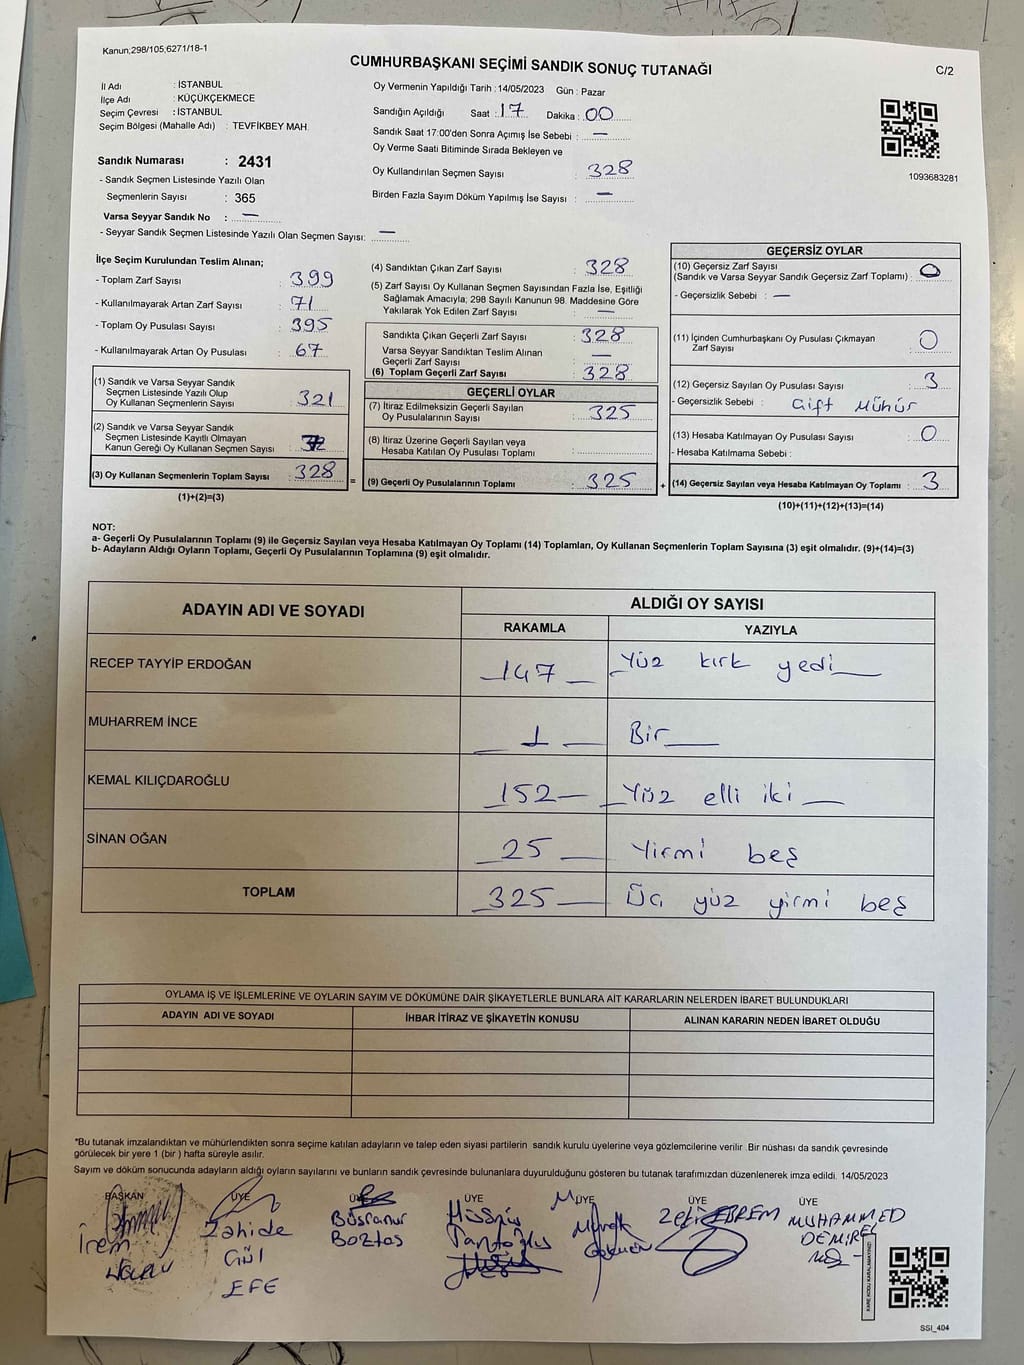 Kanun;298/105;6271/18-1
CUMHURBAŞKANI SEÇİMİ SANDIK SONUÇ TUTANAĞI
C/2
İl Adı : İSTANBUL
İlçe Adı : KÜÇÜKÇEKMECE
Seçim Çevresi : İSTANBUL
Seçim Bölgesi (Mahalle Adı) : TEVFİKBEY MAH.
Oy Vermenin Yapıldığı Tarih : 14/05/2023 Gün : Pazar
Sandığın Açıldığı Saat : 17 Dakika : 00
Sandık Saat 17:00'den Sonra Açımış İse Sebebi : —
Oy Verme Saati Bitiminde Sırada Bekleyen ve
Oy Kullandırılan Seçmen Sayısı : 328
Birden Fazla Sayım Döküm Yapılmış İse Sayısı : —
1093683281
Sandık Numarası : 2431
- Sandık Seçmen Listesinde Yazılı Olan
Seçmenlerin Sayısı : 365
Varsa Seyyar Sandık No : —
- Seyyar Sandık Seçmen Listesinde Yazılı Olan Seçmen Sayısı: —
İlçe Seçim Kurulundan Teslim Alınan;
- Toplam Zarf Sayısı : 399
- Kullanılmayarak Artan Zarf Sayısı : 71
- Toplam Oy Pusulası Sayısı : 395
- Kullanılmayarak Artan Oy Pusulası : 67
(1) Sandık ve Varsa Seyyar Sandık
Seçmen Listesinde Yazılı Olup
Oy Kullanan Seçmenlerin Sayısı : 321
(2) Sandık ve Varsa Seyyar Sandık
Seçmen Listesinde Kayıtlı Olmayan
Kanun Gereği Oy Kullanan Seçmen Sayısı :
(3) Oy Kullanan Seçmenlerin Toplam Sayısı : 328
(1)+(2)=(3)
(4) Sandıktan Çıkan Zarf Sayısı : 328
(5) Zarf Sayısı Oy Kullanan Seçmen Sayısından Fazla İse, Eşitliği
Sağlamak Amacıyla; 298 Sayılı Kanunun 98. Maddesine Göre
Yakılarak Yok Edilen Zarf Sayısı : —
Sandıkta Çıkan Geçerli Zarf Sayısı : 328
Varsa Seyyar Sandıktan Teslim Alınan
Geçerli Zarf Sayısı : —
(6) Toplam Geçerli Zarf Sayısı : 328
GEÇERLİ OYLAR
(7) İtiraz Edilmeksizin Geçerli Sayılan
Oy Pusulasının Sayısı : 325
(8) İtiraz Üzerine Geçerli Sayılan veya
Hesaba Katılan Oy Pusulası Toplamı :
= (9) Geçerli Oy Pusulalarının Toplamı : 325
GEÇERSİZ OYLAR
(10) Geçersiz Zarf Sayısı
(Sandık ve Varsa Seyyar Sandık Geçersiz Zarf Toplamı) : 0
- Geçersizlik Sebebi : —
(11) İçinden Cumhurbaşkanı Oy Pusulası Çıkmayan
Zarf Sayısı : 0
(12) Geçersiz Sayılan Oy Pusulası Sayısı : 3
- Geçersizlik Sebebi : Çift Mühür
(13) Hesaba Katılmayan Oy Pusulası Sayısı : 0
- Hesaba Katılmama Sebebi :
+ (14) Geçersiz Sayılan veya Hesaba Katılmayan Oy Toplamı : 3
(10)+(11)+(12)+(13)=(14)
NOT:
a- Geçerli Oy Pusulalarının Toplamı (9) ile Geçersiz Sayılan veya Hesaba Katılmayan Oy Toplamı (14) Toplamları, Oy Kullanan Seçmenlerin Toplam Sayısına (3) eşit olmalıdır. (9)+(14)=(3)
b- Adayların Aldığı Oyların Toplamı, Geçerli Oy Pusulalarının Toplamına (9) eşit olmalıdır.
ADAYIN ADI VE SOYADI
ALDIĞI OY SAYISI
RAKAMLA YAZIYLA
RECEP TAYYİP ERDOĞAN 147 Yüz kırk yedi
MUHARREM İNCE 1 Bir
KEMAL KILIÇDAROĞLU 152 Yüz elli iki
SİNAN OĞAN 25 Yirmi beş
TOPLAM 325 Üç yüz yirmi beş
OYLAMA İŞ VE İŞLEMLERİNE VE OYLARIN SAYIM VE DÖKÜMÜNE DAİR ŞİKAYETLERLE BUNLARA AİT KARARLARIN NELERDEN İBARET BULUNDUKLARI
ADAYIN ADI VE SOYADI İHBAR İTİRAZ VE ŞİKAYETİN KONUSU ALINAN KARARIN NEDEN İBARET OLDUĞU
*Bu tutanak imzalandıktan ve mühürlendikten sonra seçime katılan adayların ve talep eden siyasi partilerin sandık kurulu üyelerine veya gözlemcilerine verilir. Bir nüshası da sandık çevresinde
görülecek bir yere 1 (bir ) hafta süreyle asılır.
Sayım ve döküm sonucunda adayların aldığı oyların sayılarını ve bunların sandık çevresinde bulunanlara duyurulduğunu gösteren bu tutanak tarafımızdan düzenlenerek imza edildi. 14/05/2023
BAŞKAN ÜYE ÜYE ÜYE ÜYE ÜYE ÜYE
İrem
Zahide
Gül
EFE
Büşranur
Boztaş
Hüseyin
Zeki EBREM
MUHAMMED
DEMİREL
KARE KODU KARALAMAYINIZ!
SSI_404